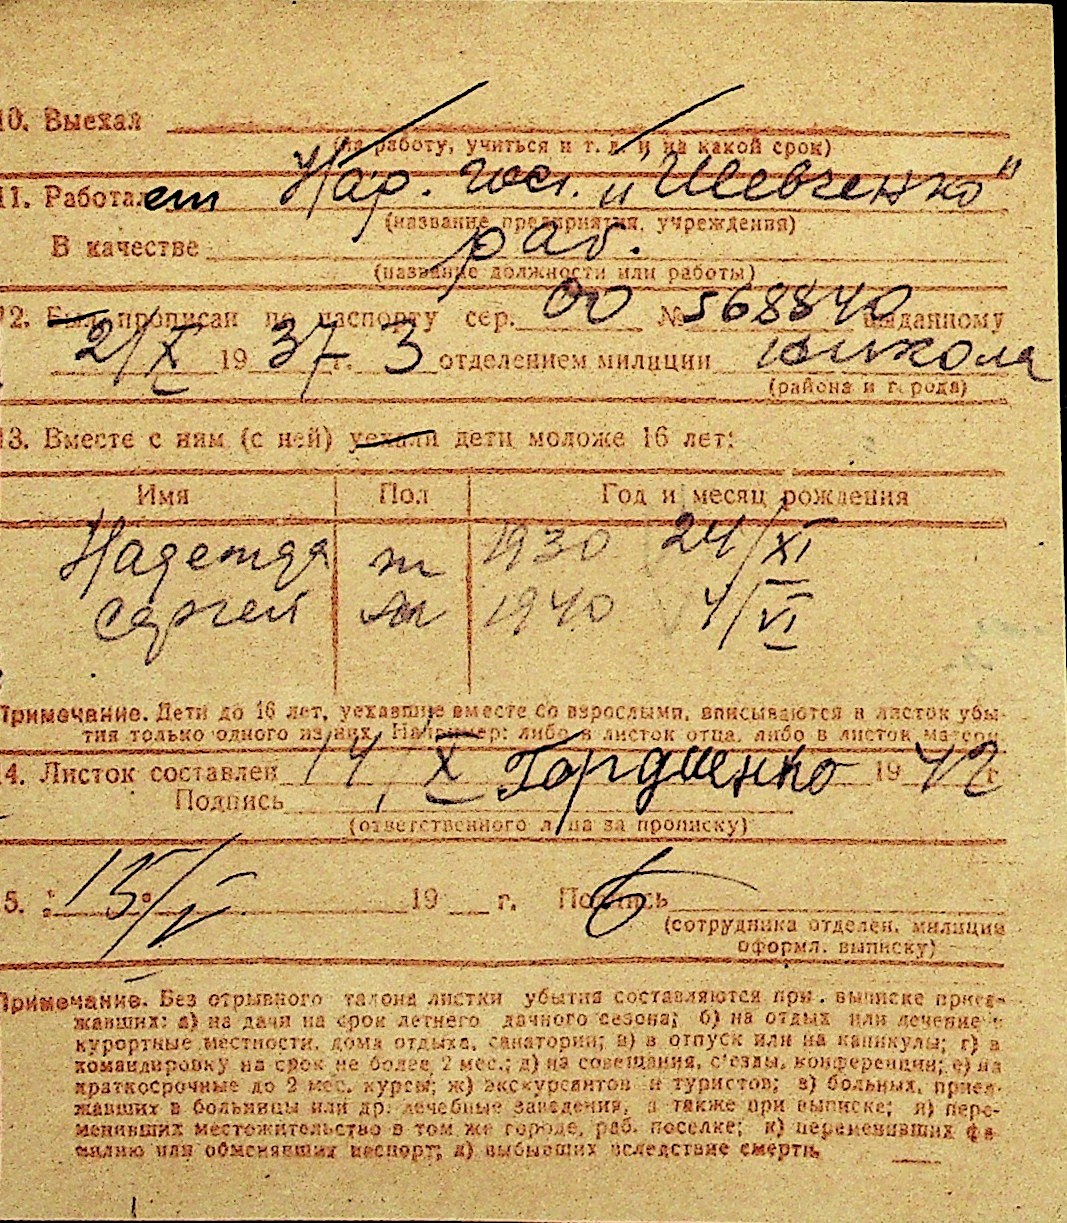 10. Выехал
(на работу, учиться и т. д. и на какой срок)
11. Работает Нар. гост. „Шевченко"
(название предприятия, учреждения)
В качестве раб.
(название должности или работы)
12. Был прописан по паспорту сер. ОО № 568840 выданному
21/X 1937 г. 3 отделением милиции
(района и города)
13. Вместе с ним (с ней) уехали дети моложе 16 лет:
Имя Пол Год и месяц рождения
Надежда ж 1930 24/XI
Сергей м 1940 4/VI
Примечание. Дети до 16 лет, уехавшие вместе со взрослыми, вписываются в листок убы-
тия только одного из них. Например: либо в листок отца, либо в листок матери.
14. Листок составлен 14/X Гордиенко 1942 г.
Подпись
(ответственного лица за прописку)
15. 15/V 19 г. Подпись
(сотрудника отделен. милиции
оформл. выписку)
Примечание. Без отрывного талона листки убытия составляются при выписке приез-
жавших: а) на дачи на срок летнего дачного сезона; б) на отдых или лечение в
курортные местности, дома отдыха, санатории; в) в отпуск или на каникулы; г) в
командировку на срок не более 2 мес.; д) на совещания, с'езды, конференции; е) на
краткосрочные до 2 мес. курсы; ж) экскурсантов и туристов; з) больных, приез-
жавших в больницы или др. лечебные заведения, а также при выписке; и) пере-
менивших местожительство в том же городе, раб. поселке; к) переменивших фа-
милию или обменявших паспорт; л) выбывших вследствие смерти.